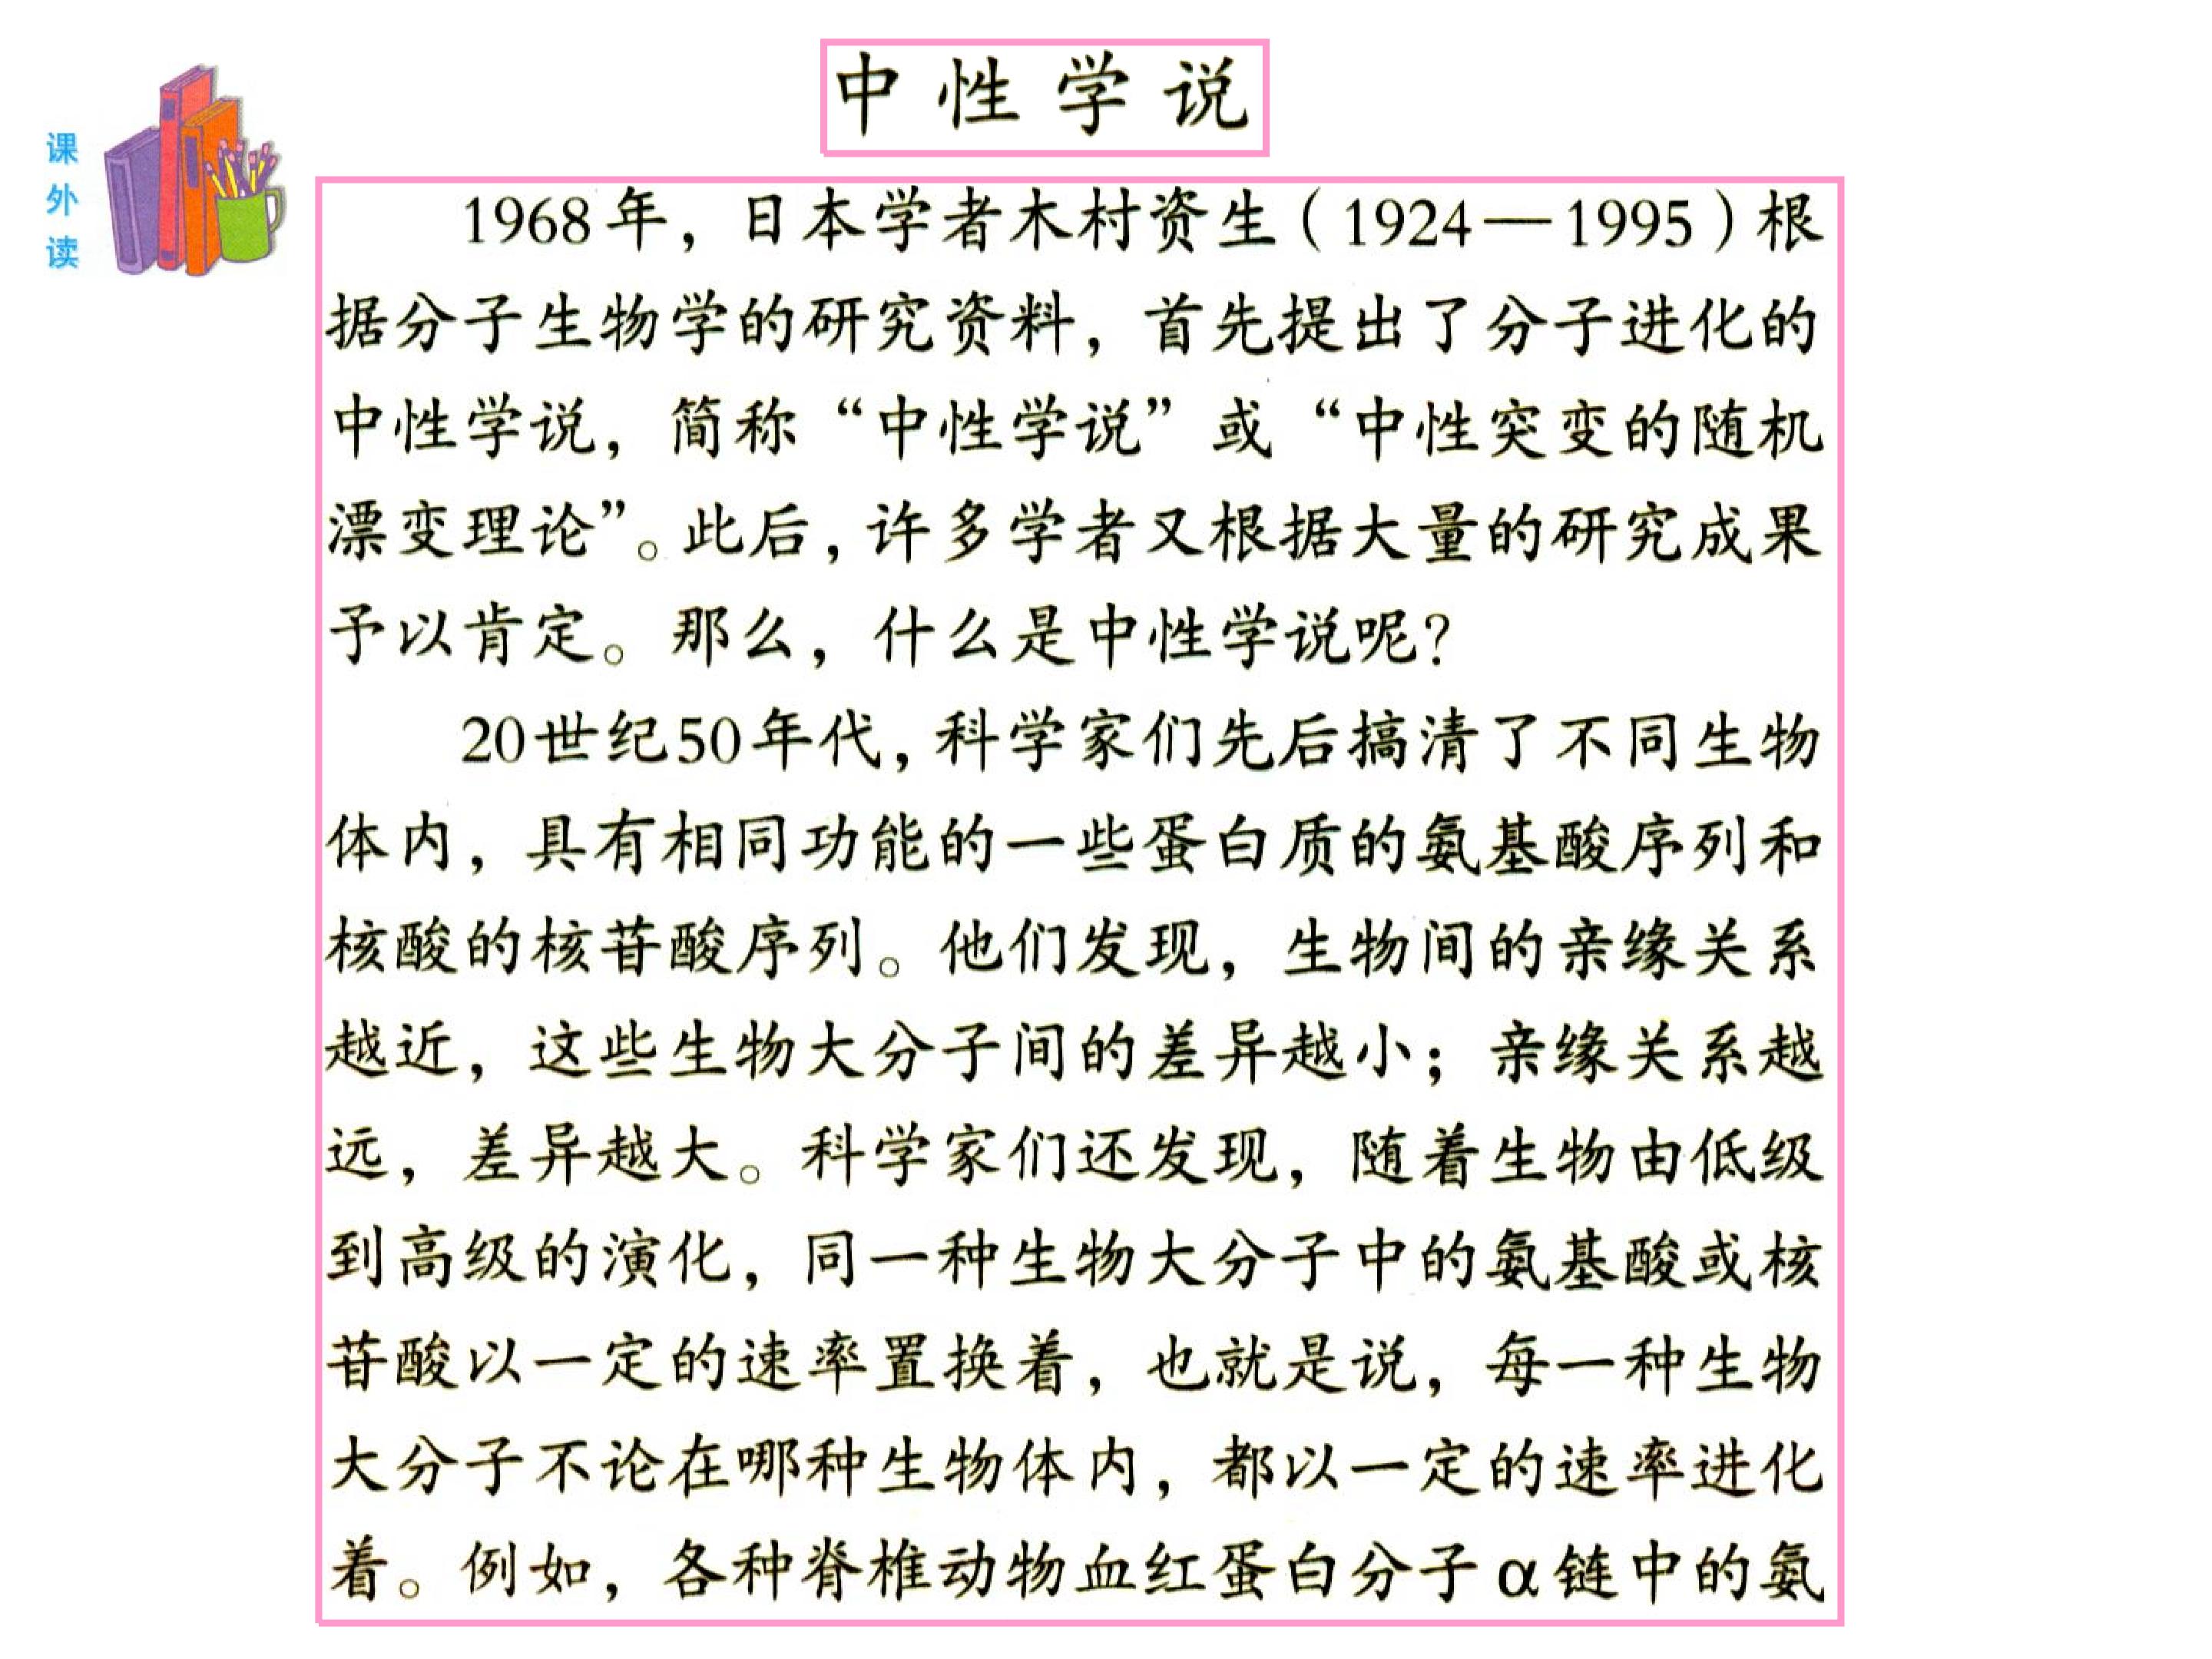 中性学说
课
外
读
1968年，日本学者木村资生（1924—1995）根
据分子生物学的研究资料，首先提出了分子进化的
中性学说，简称“中性学说”或“中性突变的随机
漂变理论”。此后，许多学者又根据大量的研究成果
予以肯定。那么，什么是中性学说呢？
20世纪50年代，科学家们先后搞清了不同生物
体内，具有相同功能的一些蛋白质的氨基酸序列和
核酸的核苷酸序列。他们发现，生物间的亲缘关系
越近，这些生物大分子间的差异越小；亲缘关系越
远，差异越大。科学家们还发现，随着生物由低级
到高级的演化，同一种生物大分子中的氨基酸或核
苷酸以一定的速率置换着，也就是说，每一种生物
大分子不论在哪种生物体内，都以一定的速率进化
着。例如，各种脊椎动物血红蛋白分子α链中的氨